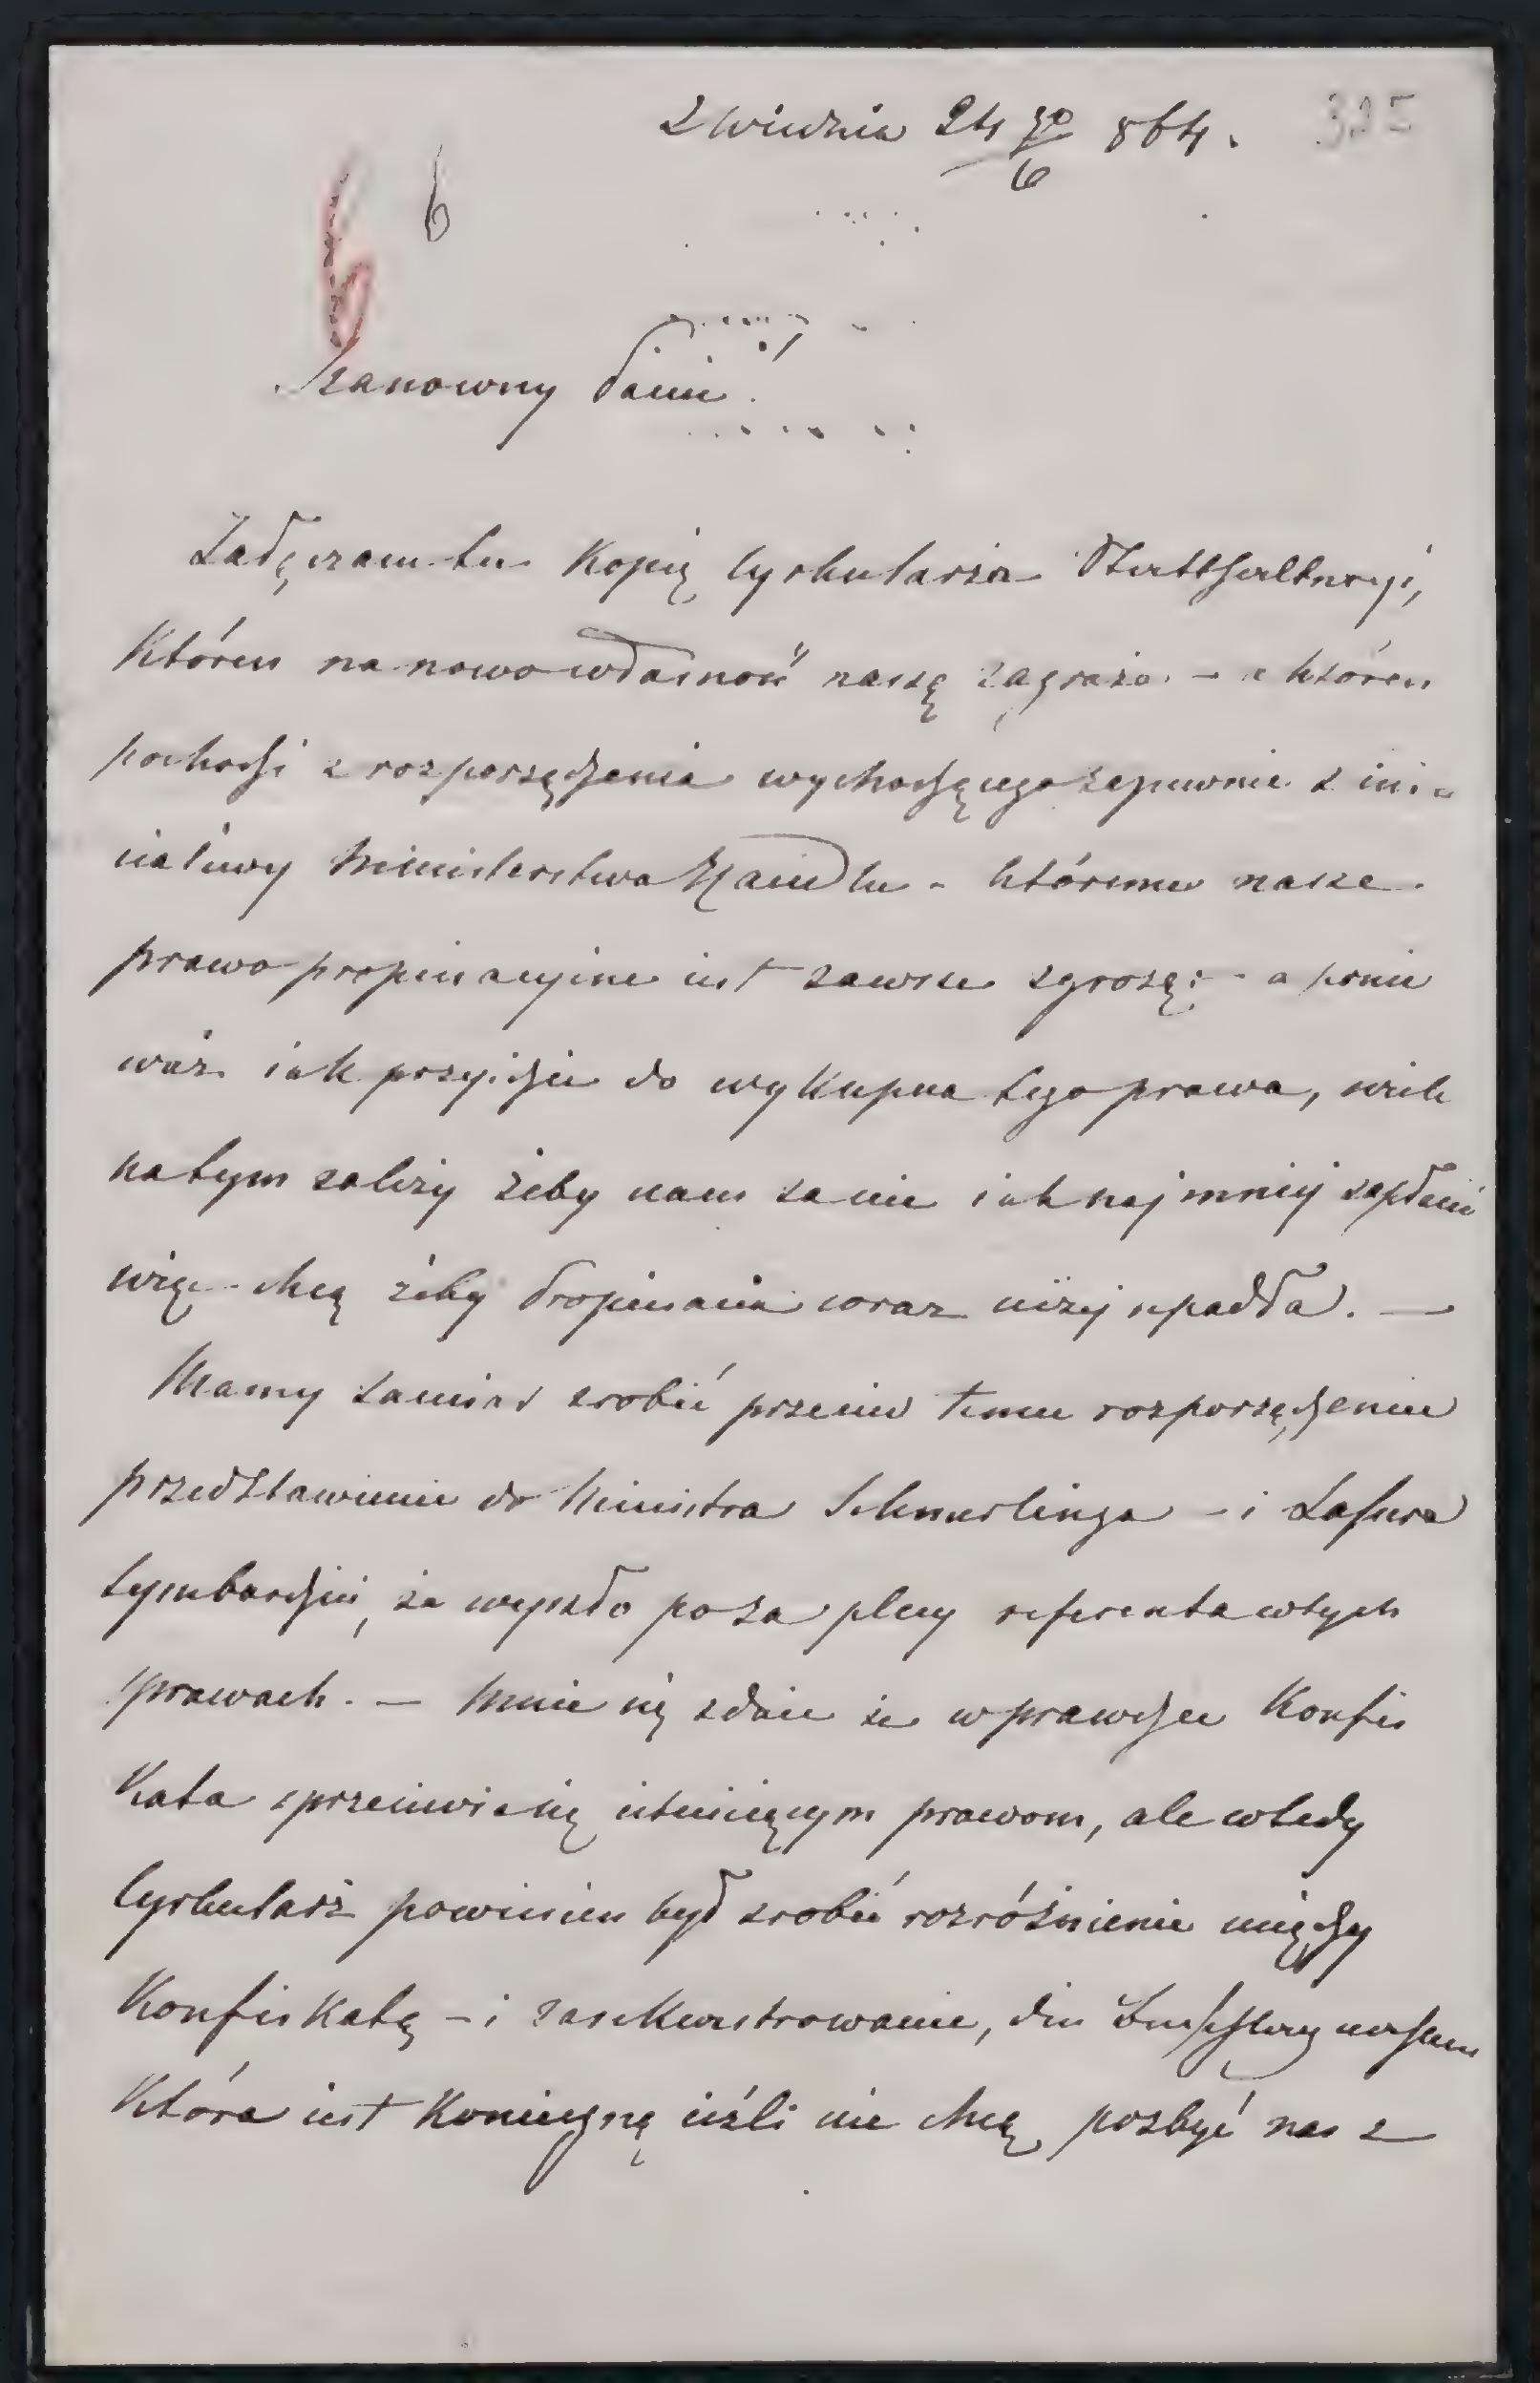 z Wiednia 24 go/6 864.
325
6
6
Szanowny Panie!
Załączam tu Kopię Cyrkularza Statthalteryi,
Któren na nowo własność naszą zagraża – a któren
pochodzi z rozporządzenia wychodzącego zapewnie z ini-
ciatiwy Ministerstwa Handlu – któremu nasze
prawo propinacyjne iest zawsze zgrozą; – a ponie
waż iak przyidzie do wykupna tego prawa, wiele
na tym zależy żeby nam za nie iak najmniej zapłacić
więc chcą żeby Propinacia coraz niżej upadła. —
Mamy zamiar zrobić przeciw temu rozporządzeniu
przedstawienie do Ministra Schmerlinga – i Lassera
tymbardziei, że wyszło poza plecy referenta w tych
sprawach. — Mnie się zdaie że w prawdzie Konfis
Kata sprzeciwia się istnieiącym prawom, ale wtedy
Cyrkularz powinien był zrobić rozróżnienie między
Konfiskatą – i zasekwestrowanie, die
Która iest Konieczną ieśli nie chcą pozbyć nas z